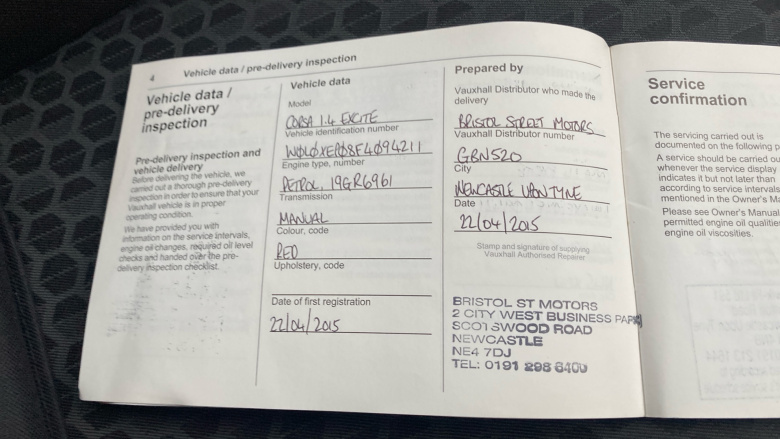 4 Vehicle data / pre-delivery inspection
Vehicle data /
pre-delivery
inspection
Pre-delivery inspection and
vehicle delivery
Before delivering the vehicle, we
carried out a thorough pre-delivery
inspection in order to ensure that your
Vauxhall vehicle is in proper
operating condition.
We have provided you with
information on the service intervals,
engine oil changes, required oil level
checks and handed over the pre-
delivery inspection checklist.
Vehicle data
Model
CORSA 1.4 EXCITE
Vehicle identification number
W0L0XEP08F4094211
Engine type, number
PETROL, 19GR6961
Transmission
MANUAL
Colour, code
RED
Upholstery, code
Date of first registration
22/04/2015
Prepared by
Vauxhall Distributor who made the
delivery
BRISTOL STREET MOTORS
Vauxhall Distributor number
GBN520
City
NEWCASTLE UPON TYNE
Date
22/04/2015
Stamp and signature of supplying
Vauxhall Authorised Repairer
BRISTOL ST MOTORS
2 CITY WEST BUSINESS PARK
SCOTSWOOD ROAD
NEWCASTLE
NE4 7DJ
TEL: 0191 298 6400
Service
confirmation
The servicing carried out is
documented on the following p
A service should be carried ou
whenever the service display
indicates it but not later than
according to service intervals
mentioned in the Owner's Ma
Please see Owner's Manual
permitted engine oil qualitie
engine oil viscosities.